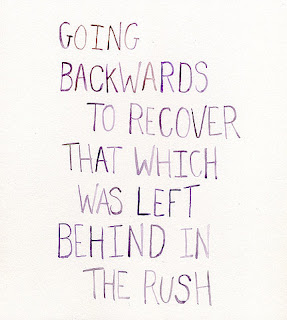 GOING
BACKWARDS
TO RECOVER
THAT WHICH
WAS LEFT
BEHIND IN
THE RUSH